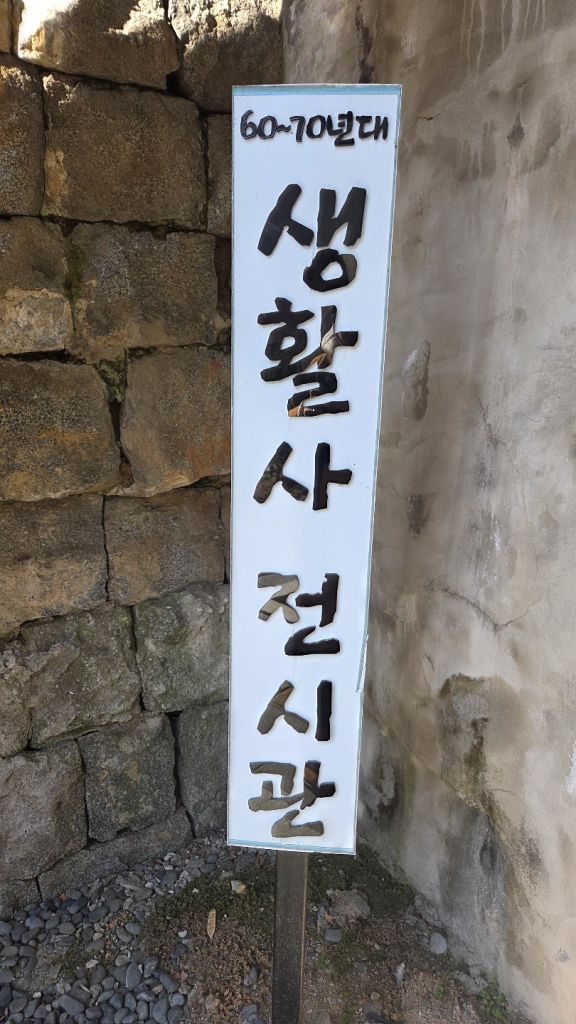 60~70년대
생활사 전시관